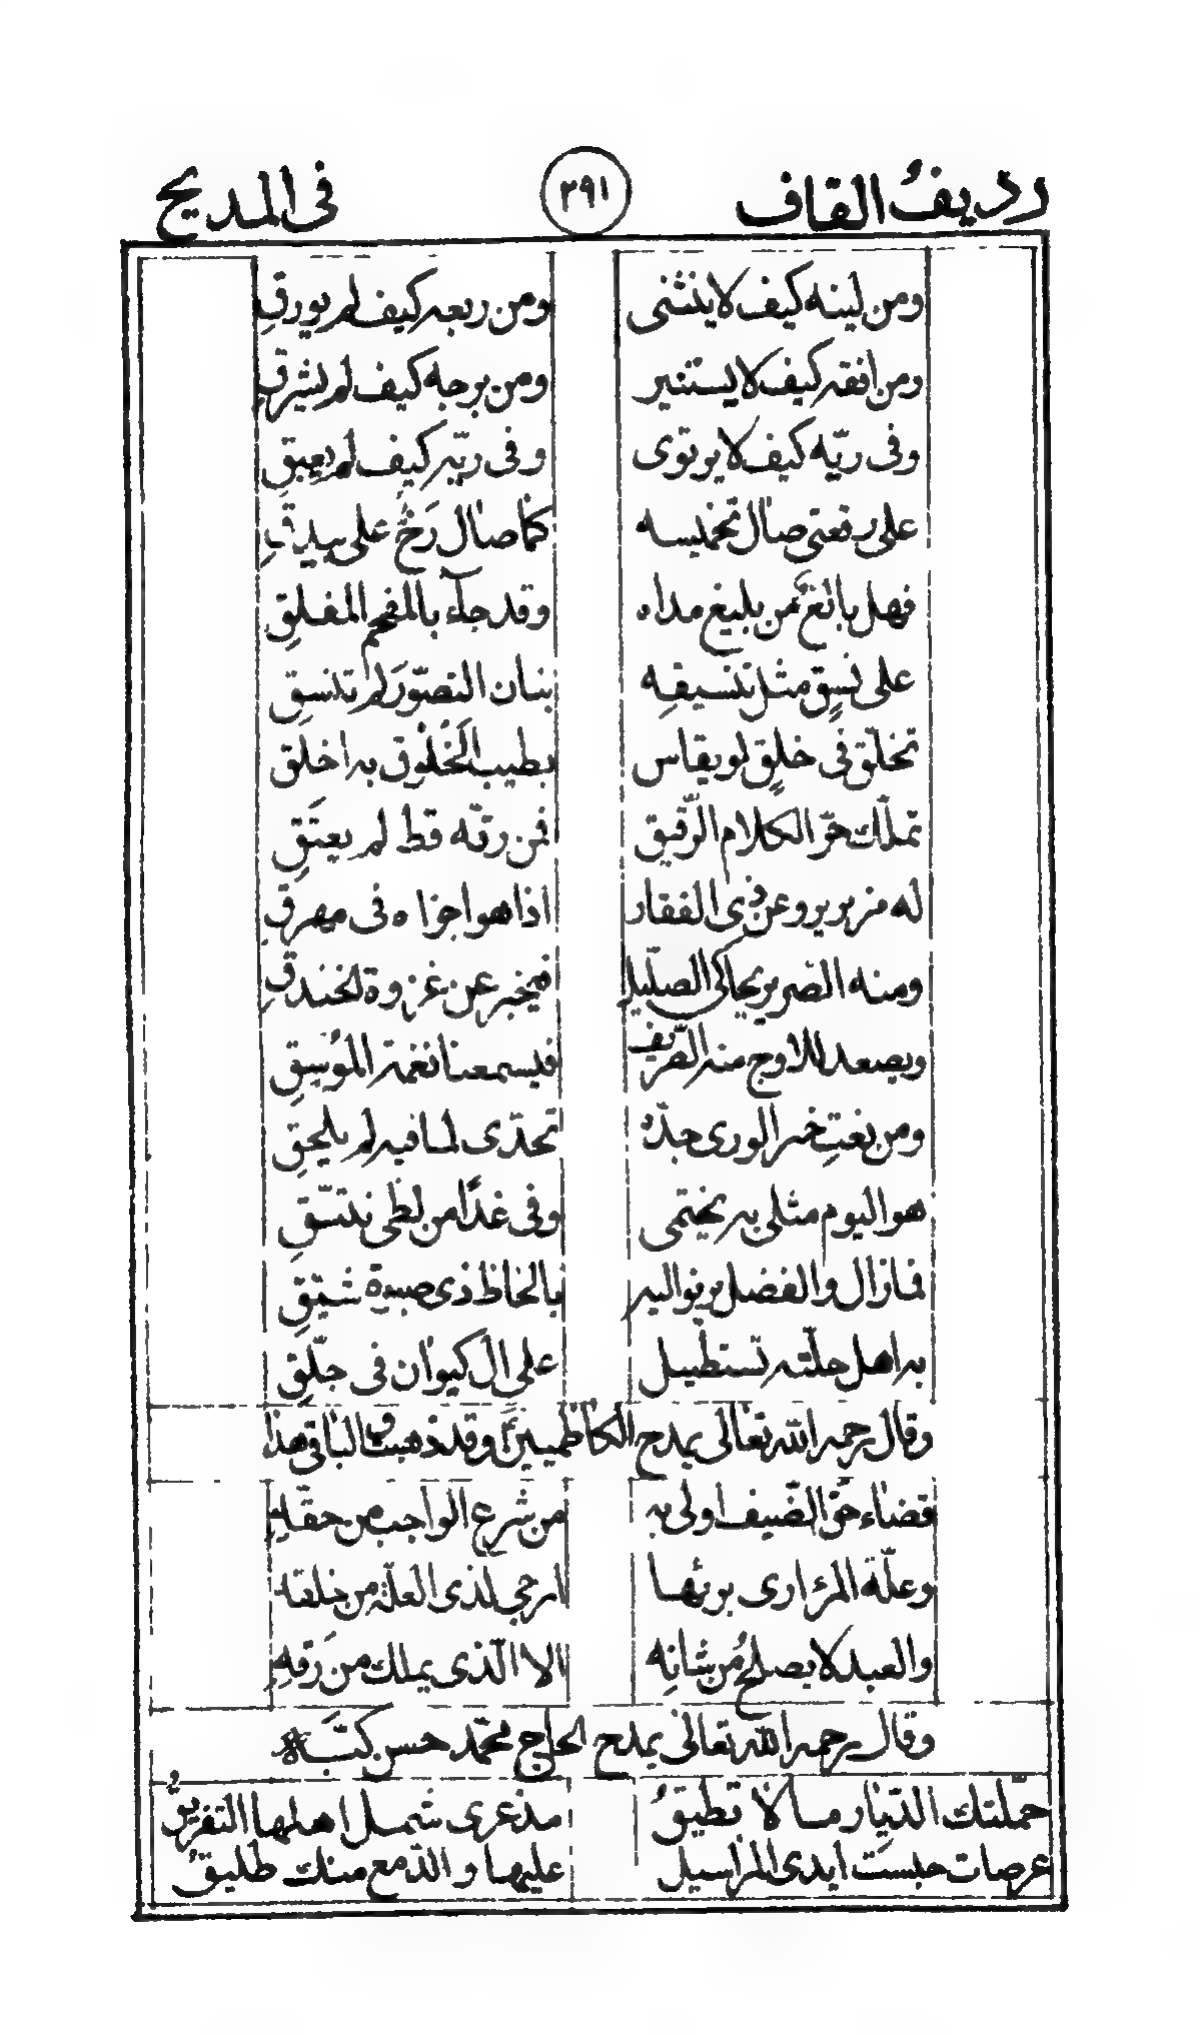 رديفُ القاف ٣٩١ فى المديح
ومن لينه كيف لا ينثنى ومن ربعه كيف لم يورقِ
ومن افقه كيف لا يستنير ومن برجه كيف لم يشرقِ
وفى ريّه كيف لا يرتوى وفى ريّه كيف لم يعبقِ
على رفعتى صال تخميسه كما صال رَخٌّ على بيدقِ
فهل بالغ من بليغ مداه وقد جآء بالمفحم المفلقِ
على نسقٍ مثل تنسيقه بنان التصوّر لم تنسقِ
تخلّق فى خلقٍ لو يقاس بطيب الخَلُوق به اخلقِ
تملّك حرّ الكلام الرّقيق فمن رقّه قط لم يعتَقِ
له مزبر يروعن ذى الفقار اذا هو اجراه فى مهرقِ
ومنه الصّرير يحاكى الصّليل فيخبر عن غزوة الخندقِ
ويصعد للاوج منه الصّريف فيسمعنا نغمة المُوسِقِ
ومن نعتِ خير الورى جدّه تحدّى لما فيه لم يلحقِ
هو اليوم مثلى به يحتمى وفى غدًا من لظى نتّقِ
فما زال والفضل يرنو اليه بالحاظ ذى صبوة شيّقِ
به اهل حلّته تستطيل على ال كيوان فى جلّقِ
وقال رحمه الله تعالى يمدح الكاظميين ع وقد ذهبت والباقى هذا
قضاء حقّ الضّيف اولى به من شرع الواجب من حقّه
وعلّة المرء ارى برئها ارجى لذى العلة من خلقه
والعبد لا يصلحُ من شانِه الا الّذى يملك من رَقّهِ
وقال رحمه الله تعالى يمدح الحاج محمّد حسن كبّه
حمّلتك الدّيار ما لا تطيقُ مذ عرى شمل اهلها التفريقُ
عرصات حبست ايدى المراسيل عليها والدّمع منك طليقُ